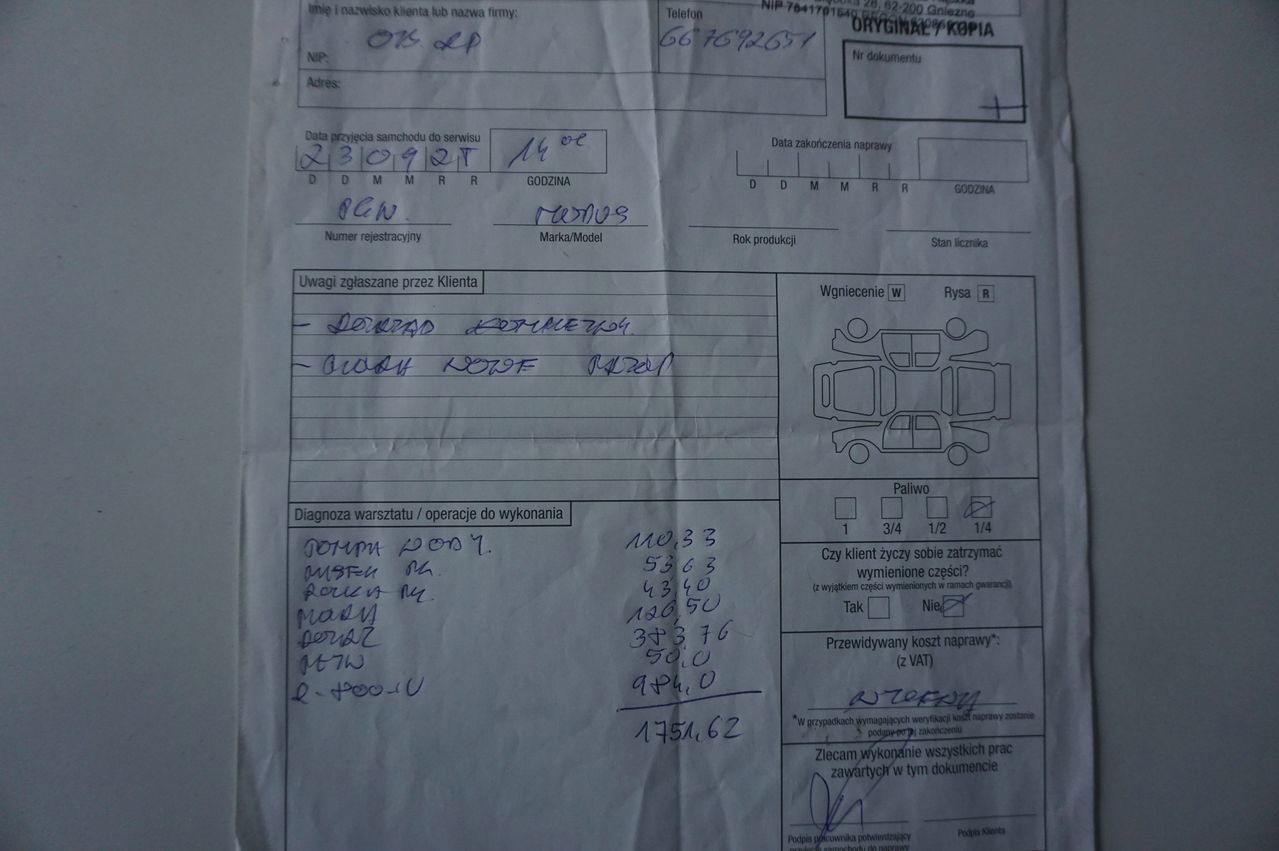 28, 62-200 Gniezno
NIP 7841701640
ORYGINAŁ / KOPIA
Imię i nazwisko klienta lub nazwa firmy:
Telefon
667692651
NIP:
Adres:
Nr dokumentu
Data przyjęcia samchodu do serwisu
23092
14 00
D D M M R R GODZINA
Data zakończenia naprawy
D D M M R R GODZINA
PGN.
Numer rejestracyjny
Marka/Model
Rok produkcji
Stan licznika
Uwagi zgłaszane przez Klienta
- ROZRZĄD KOMPLETNY.
- NOWE PRZÓD
Wgniecenie W Rysa R
Paliwo
1 3/4 1/2 1/4
Diagnoza warsztatu / operacje do wykonania
POMPA WODY. 110,33
PASEK PK. 53,63
ROLKA PK. 43,40
126,50
ROZRZ 383,76
PŁYN 50,0
984,0
1751,62
Czy klient życzy sobie zatrzymać
wymienione części?
(z wyjątkiem części wymienionych w ramach gwarancji)
Tak Nie
Przewidywany koszt naprawy*:
(z VAT)
*W przypadkach wymagających weryfikacji koszt naprawy zostanie
podany po jej zakończeniu
Zlecam wykonanie wszystkich prac
zawartych w tym dokumencie
Podpis pracownika potwierdzający
przyjęcie samochodu do naprawy
Podpis Klienta